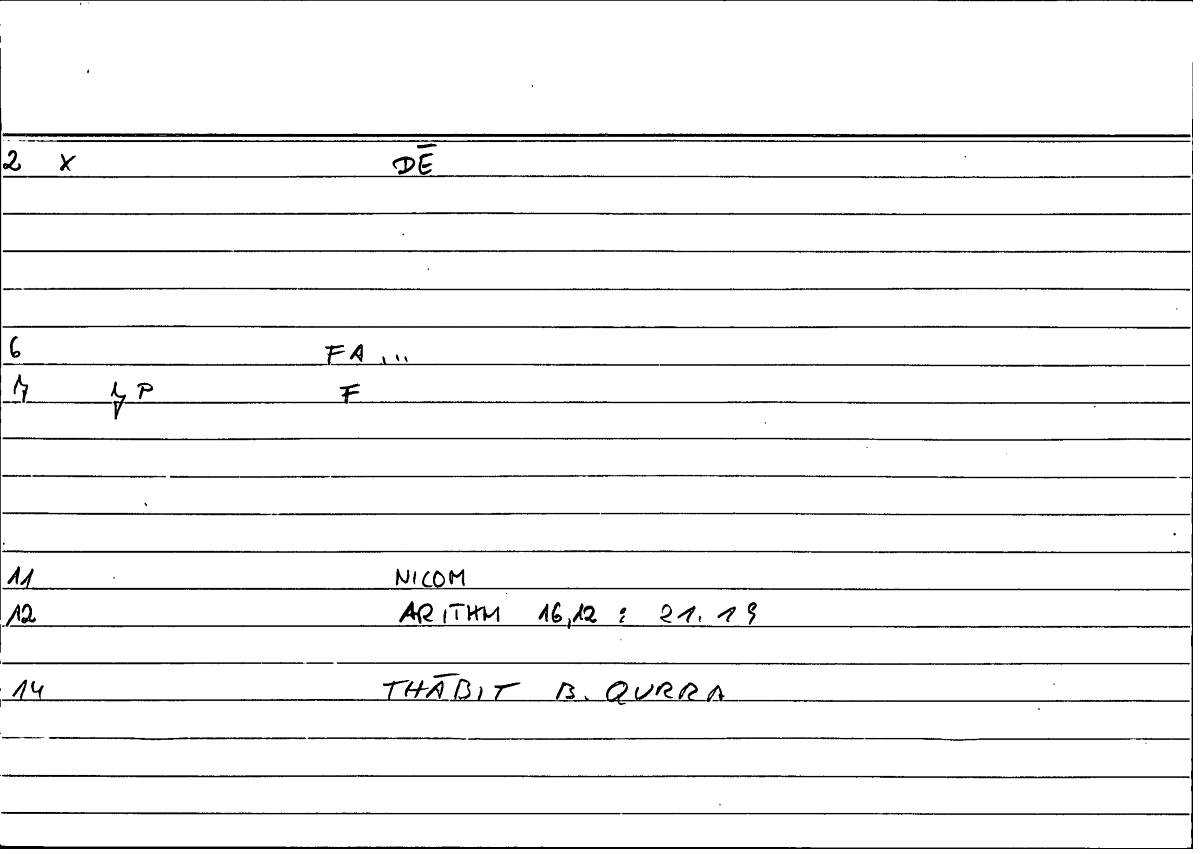 2 X DĒ
6 FA ...
7 P F
11 NICOM
12 ARITHM 16,12 : 21.19
14 THĀBIT B. QURRA